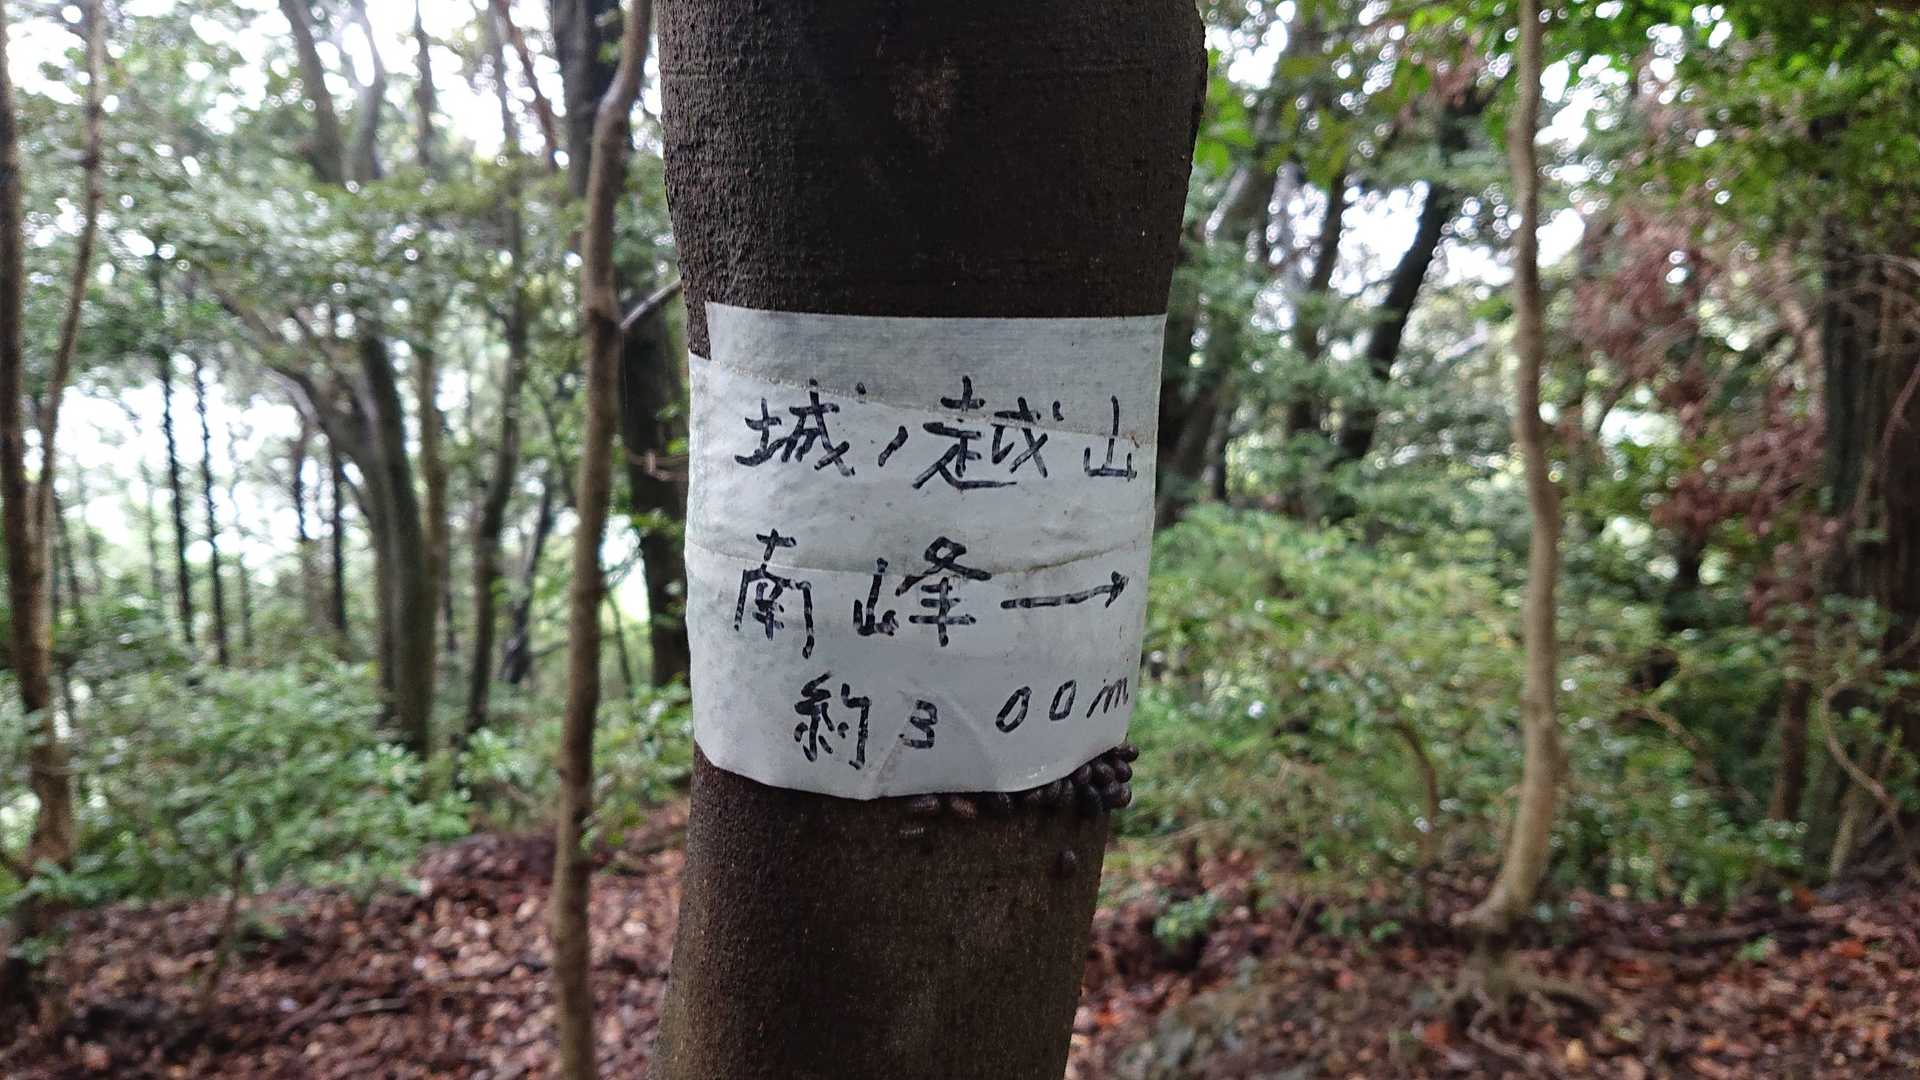 城ノ越山
南峰→
約300m